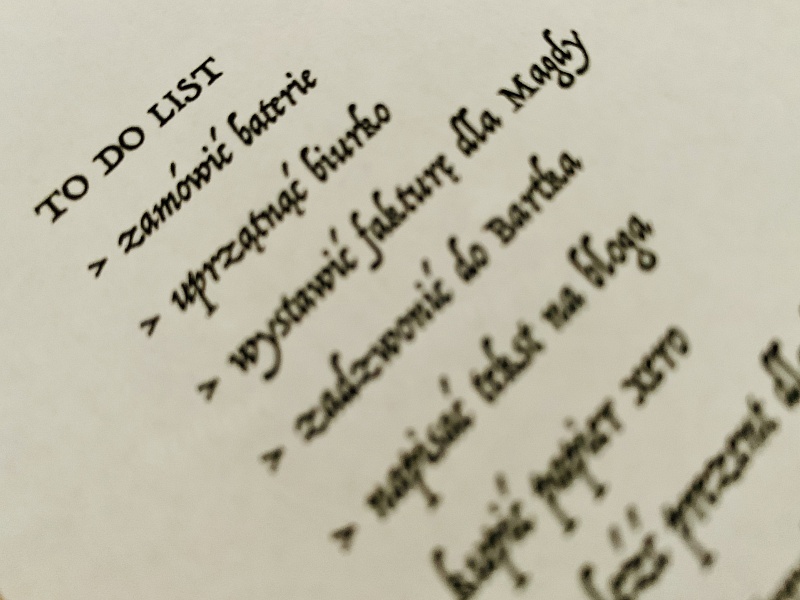 TO DO LIST
> zamówić baterie
> uprzątnąć biurko
> wystawić fakturę dla Magdy
> zadzwonić do Bartka
> napisać tekst na bloga
kupić papier xero
prezent